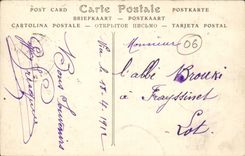 POST CARD Carte Postale POSTKARTE
BRIEFKAART POSTKAART
CARTOLINA POSTALE ОТКРЫТОЕ ПИСЬМО TARJETA POSTAL
Monsieur
06
l'abbé
à
Frayssinet
Lot.
Bons Souvenirs
le 18-4-1912